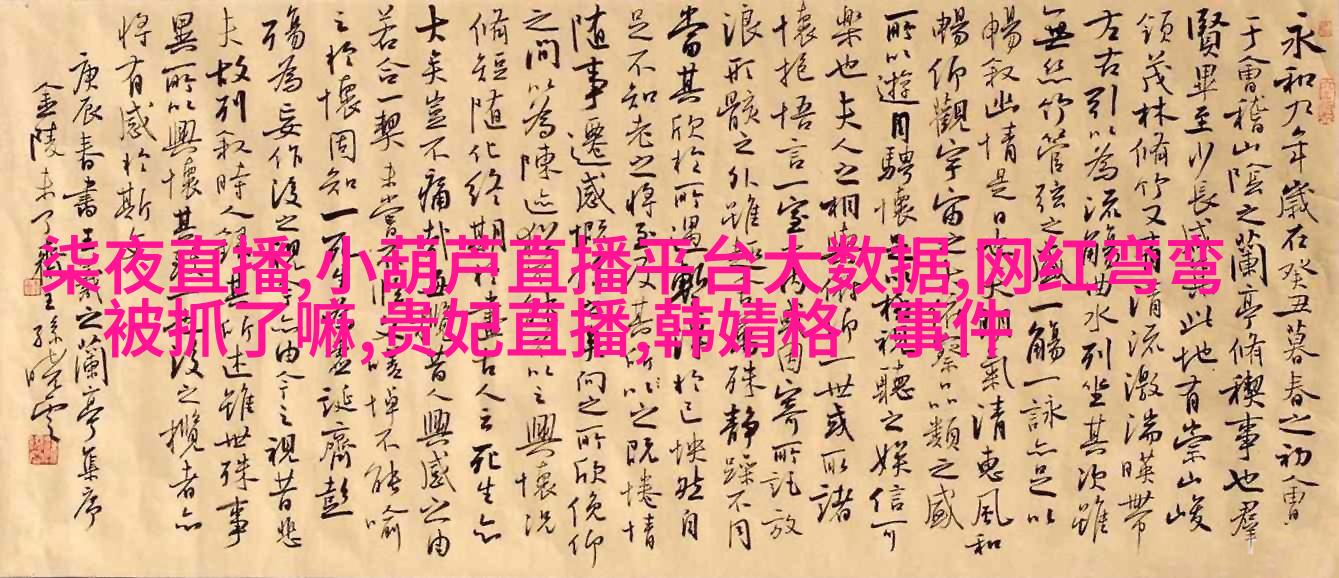 柒夜直播,小葫芦直播平台大数据,网红弯弯
被抓了嘛,贵妃直播,韩婧格 事件
永和九年歲在癸丑暮春之初會
于會稽山陰之蘭亭脩禊事也群
賢畢至少長咸集此地有崇山峻
領茂林脩竹又有清流激湍暎帶
左右引以為流觴曲水列坐其次雖
無絲竹管弦之盛一觴一詠亦足以
暢敘幽情是日也天朗氣清惠風和
暢仰觀宇宙之大俯察品類之盛
所以遊目騁懷足以極視聽之娛信可
樂也夫人之相與俯仰一世或取諸
懷抱悟言一室之內或因寄所託放
浪形骸之外雖趣舍萬殊靜躁不同
當其欣於所遇暫得於己怏然自
足不知老之將至及其所之既惓情
随事遷感慨係之矣向之所欣俛仰
之間以為陳迹猶不能不以之興懷況
脩短随化終期於盡古人云死生亦
大矣豈不痛哉每覽昔人興感之由
若合一契未嘗不臨文嗟悼不能喻
之於懷固知一死生為虛誕齊彭
殤為妄作後之視今亦由今之視昔悲
夫故列敘時人錄其所述雖世殊事
異所以興懷其致一也後之攬者亦
將有感於斯文
庚辰春書王羲之蘭亭集序
金陵未了主孫曉雲